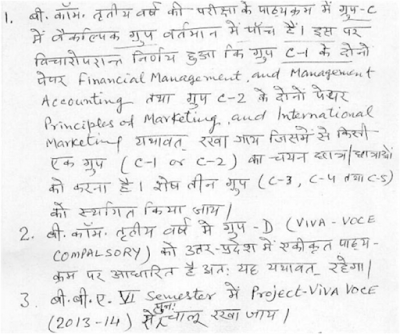 1. बी. कॉम. तृतीय वर्ष की परीक्षा के पाठ्यक्रम में ग्रुप-C
में वैकल्पिक ग्रुप वर्तमान में पाँच हैं। इस पर
विचारोपरान्त निर्णय हुआ कि ग्रुप C-1 के दोनों
पेपर Financial Management, and Management
Accounting तथा ग्रुप C-2 के दोनों पेपर
Principles of Marketing, and International
Marketing यथावत् रखा जाय जिसमें से किसी
एक ग्रुप (C-1 or C-2) का चयन छात्र/छात्राओं
को करना है। शेष तीन ग्रुप (C-3, C-4 तथा C-5)
को स्थगित किया जाय।
2. बी. कॉम. तृतीय वर्ष में ग्रुप-D (VIVA-VOCE
COMPALSORY) को उत्तर-प्रदेश में एकीकृत पाठ्य-
क्रम पर आधारित है अतः यह यथावत् रहेगा।
3. बी. बी. ए. VI Semester में Project-VIVA VOCE
(2013-14) से पुनः चालू रखा जाय।